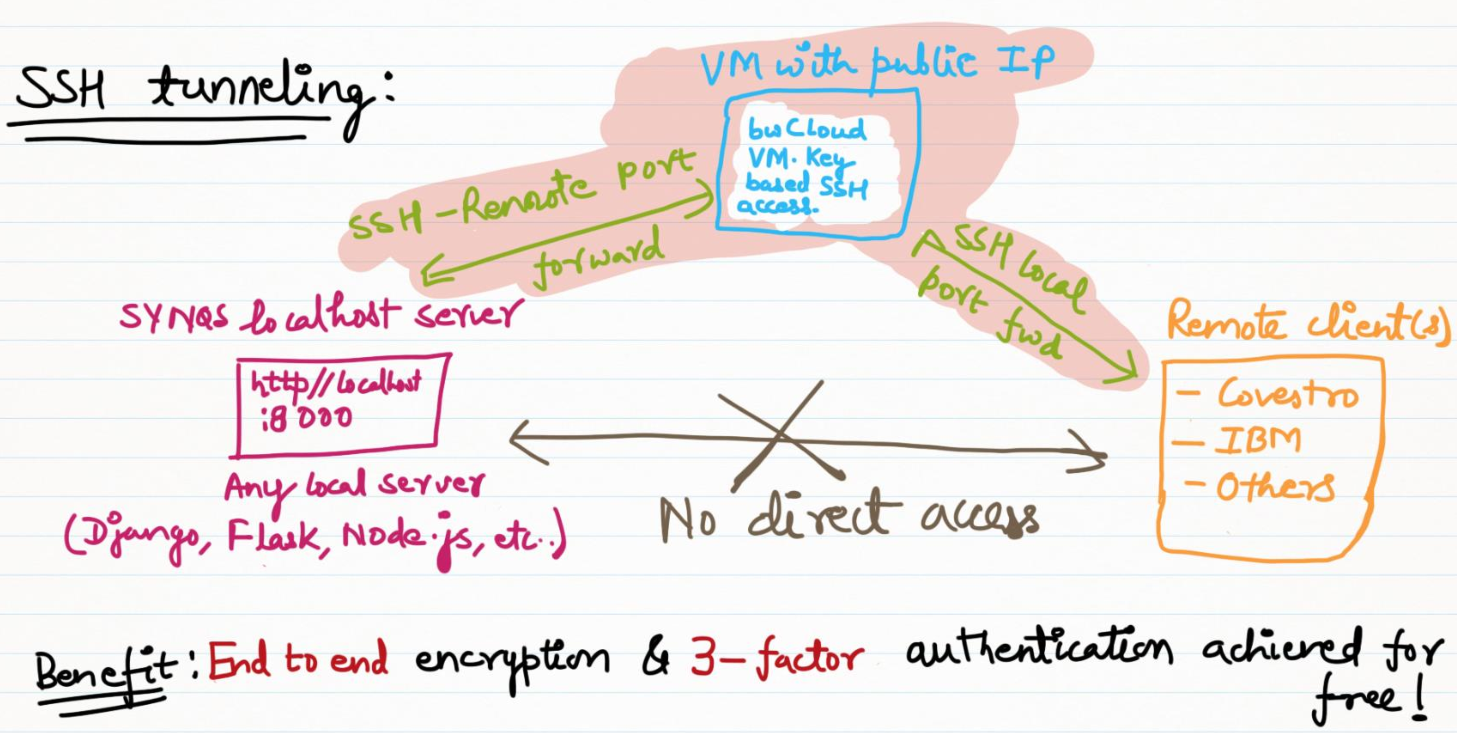 SSH tunneling:
VM with public IP
bwCloud
VM. Key
based SSH
access.
SSH-Remote port
forward
SSH local
port fwd
SYNQS localhost server
http//localhost
:8000
Any local server
(Django, Flask, Node.js, etc..)
No direct access
Remote client(s)
- Covestro
- IBM
- Others
Benefit: End to end encryption & 3-factor authentication achieved for
free!